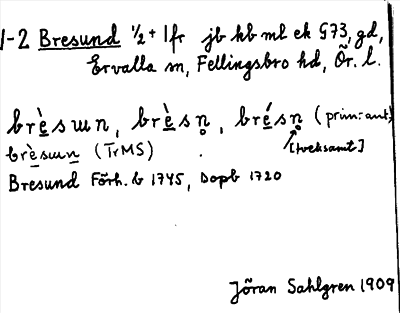 1-2 Bresund ½ + 1fr jb kb ml ek G73, gd,
Ervalla sn, Fellingsbro hd, Ör. l.
brèsɯn, brèsn̥, brésn̥ (prim: ant)
brèsɯn (TrMS) [tveksamt]
Bresund Förh. b 1745, Dopb 1720
Jöran Sahlgren 1909